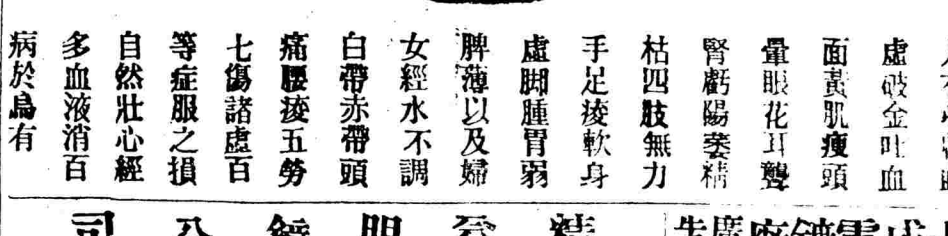 虛破金吐血
面黃肌瘦頭
暈眼花耳聾
腎虧陽萎精
枯四肢無力
手足痠軟身
虛脚腫胃弱
脾薄以及婦
女經水不調
白帶赤帶頭
痛腰痠五勞
七傷諸虛百
等症服之損
自然壯心經
多血液消百
病於烏有